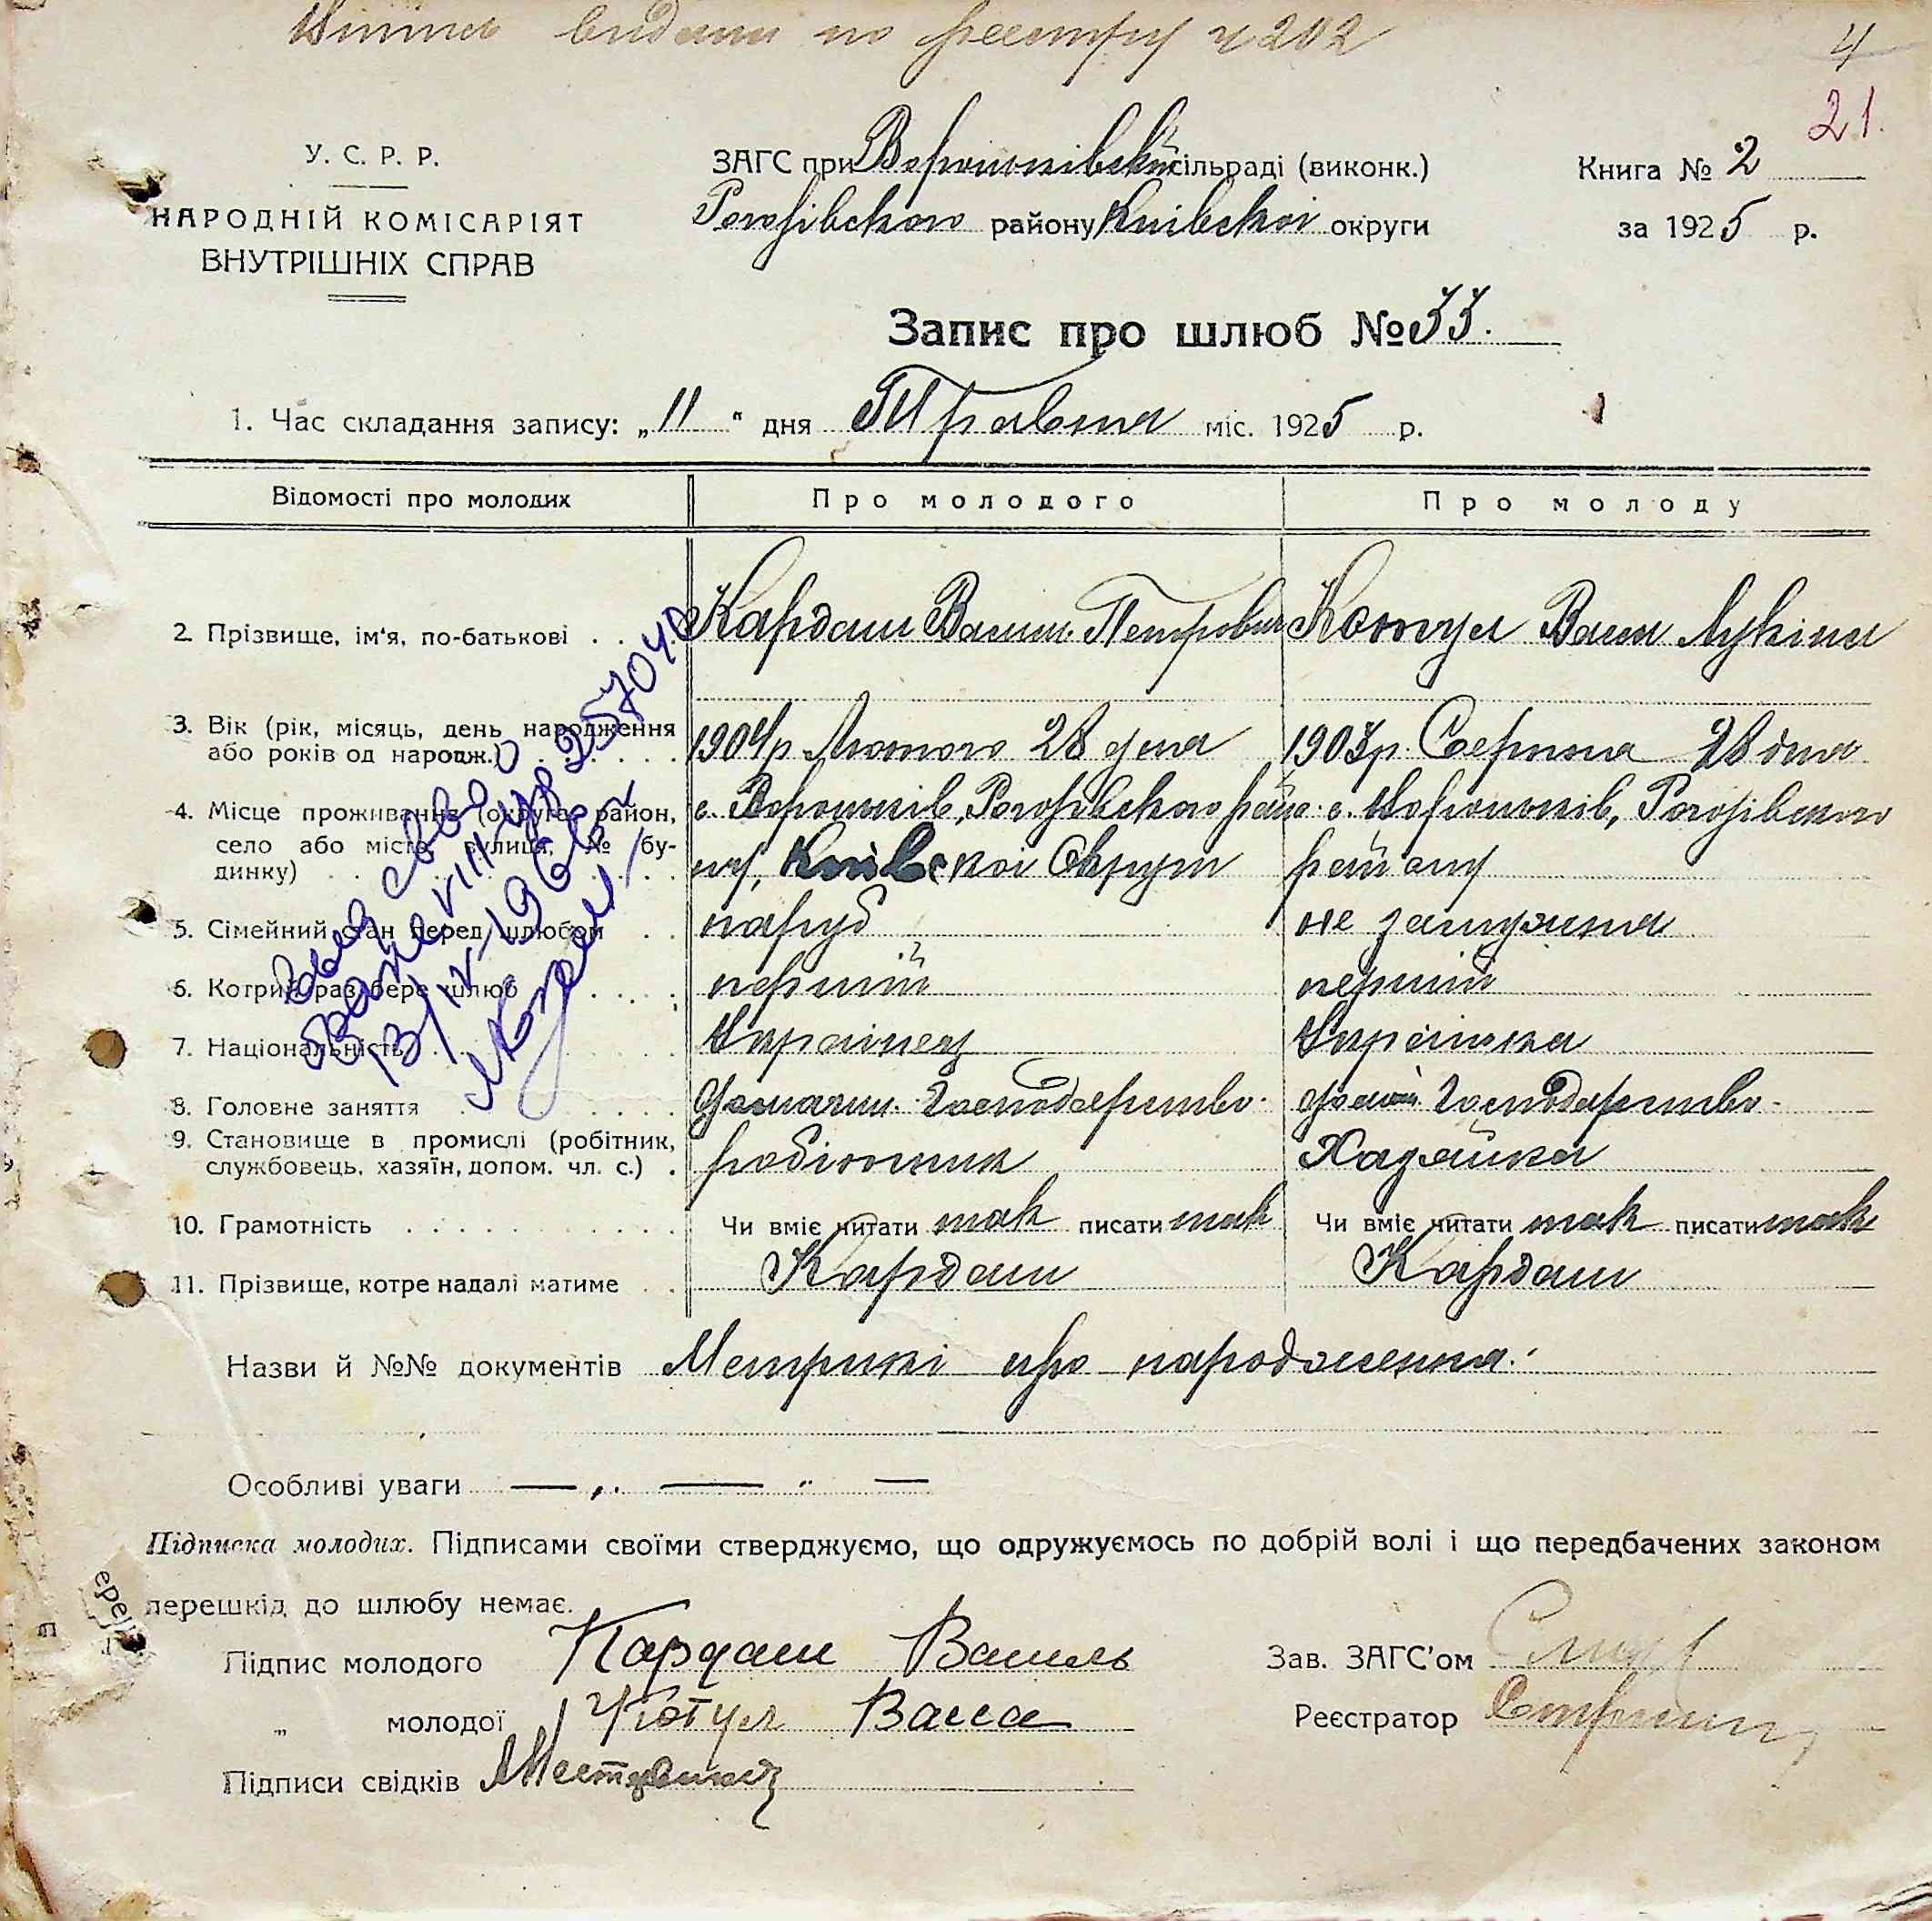 видани по реестру ч 202
4
21.
У. С. Р. Р.
НАРОДНІЙ КОМІСАРІЯТ
ВНУТРІШНІХ СПРАВ
ЗАГС при Вороньківській сільраді (виконк.)
Рогозівского району Киівскоі округи
Книга № 2
за 1925 р.
Запис про шлюб № 33.
1. Час складання запису: „11" дня Травня міс. 1925 р.
Відомості про молодих
Про молодого
Про молоду
2. Прізвище, ім'я, по-батькові
Кардаш Василь Петрович
Котул Васса Лукіна
3. Вік (рік, місяць, день народження
або років од народж.)
1904р Лютого 28 дня
1903р. Серпня 28 дня
4. Місце проживання (округа, район,
село або місто, вулиця, № бу-
динку)
с. Вороньків, Рогозівского райо-
ну, Киівскоі Округи
с. Вороньків, Рогозівского
району
5. Сімейний стан перед шлюбом
паруб
не замужня
6. Котрий раз бере шлюб
перший
перший
7. Національність
Украінец
Украінка
8. Головне заняття
Домашн. Господарство.
Господарство.
9. Становище в промислі (робітник,
службовець, хазяїн, допом. чл. с.)
робітник
Хазяйка
10. Грамотність
Чи вміє читати так писати так
Чи вміє читати так писати так
11. Прізвище, котре надалі матиме
Кардаш
Кардаш
Назви й №№ документів Метрикі про народження.
Особливі уваги
Підписка молодих. Підписами своїми стверджуємо, що одружуємось по добрій волі і що передбачених законом
перешкід до шлюбу немає.
Підпис молодого Кардаш Василь
Зав. ЗАГС'ом
„ молодої Котул Васса
Реєстратор
Підписи свідків